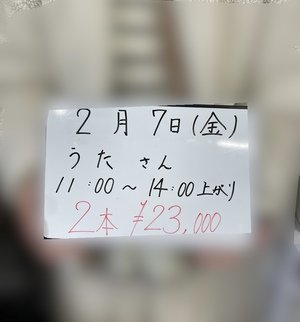 2月7日(金)
うた さん
11:00〜14:00上がり
2本 ¥23,000